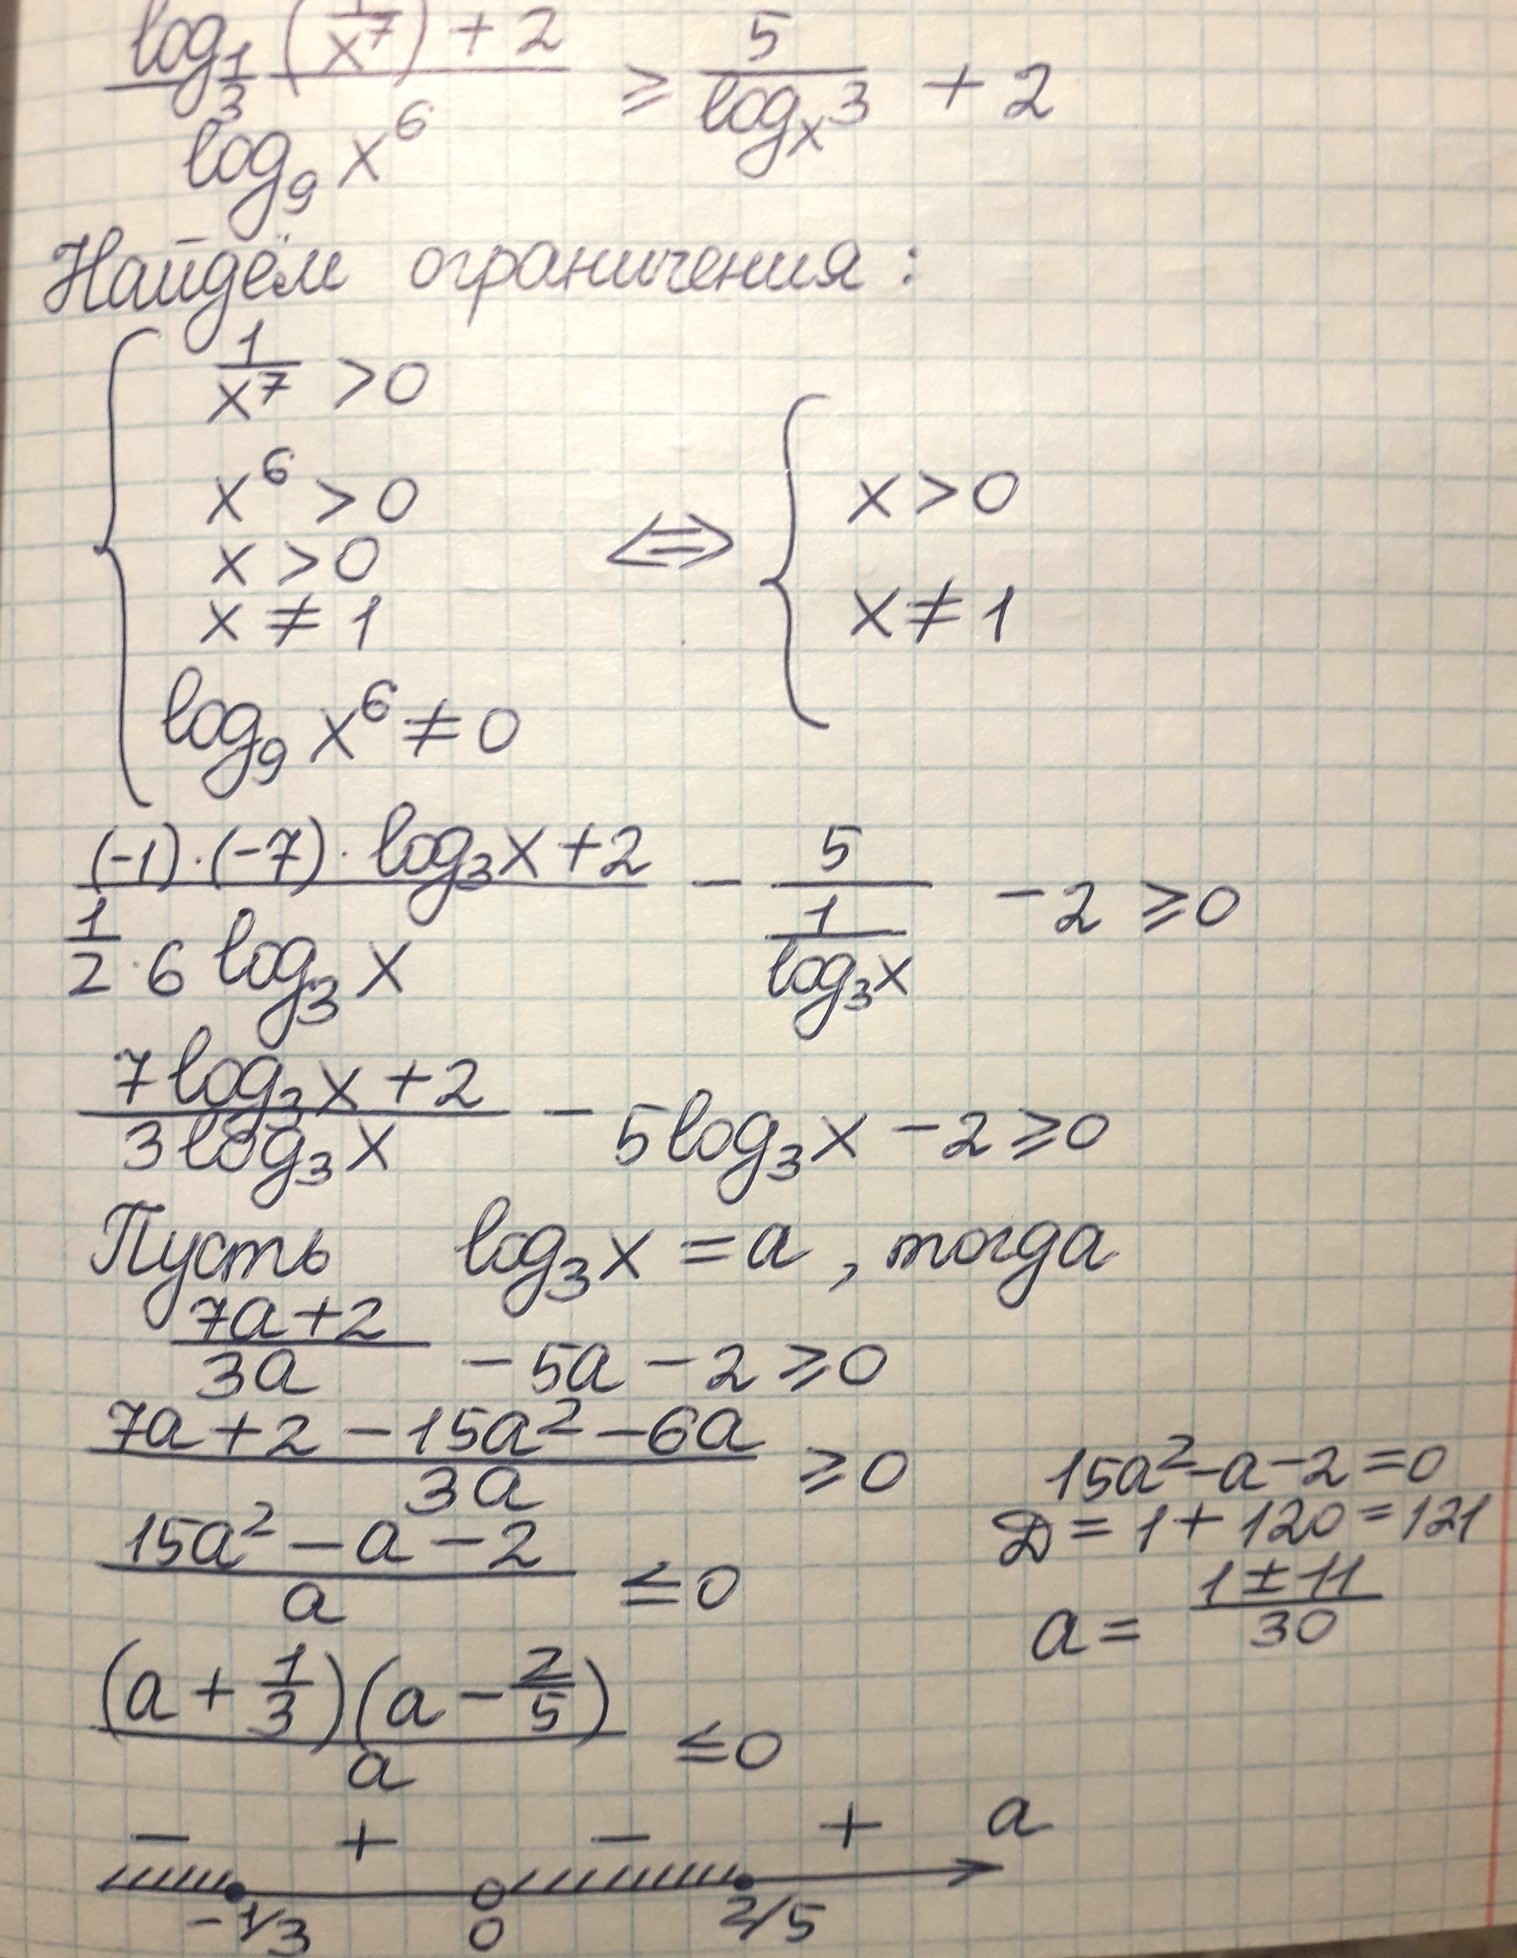 log_{1/3} (1/x^7) + 2 / log_9 x^6 ≥ 5 / log_x 3 + 2
Найдём ограничения:
{ 1/x^7 > 0
x^6 > 0
x > 0
x ≠ 1
log_9 x^6 ≠ 0
⇔ { x > 0
x ≠ 1
(-1)·(-7)·log_3 x + 2 / 1/2 · 6 log_3 x - 5 / 1/log_3 x - 2 ≥ 0
7 log_3 x + 2 / 3 log_3 x - 5 log_3 x - 2 ≥ 0
Пусть log_3 x = a, тогда
7a + 2 / 3a - 5a - 2 ≥ 0
7a + 2 - 15a^2 - 6a / 3a ≥ 0
15a^2 - a - 2 / a ≤ 0
15a^2 - a - 2 = 0
D = 1 + 120 = 121
a = 1 ± 11 / 30
(a + 1/3)(a - 2/5) / a ≤ 0
- + - + a
-1/3 0 2/5